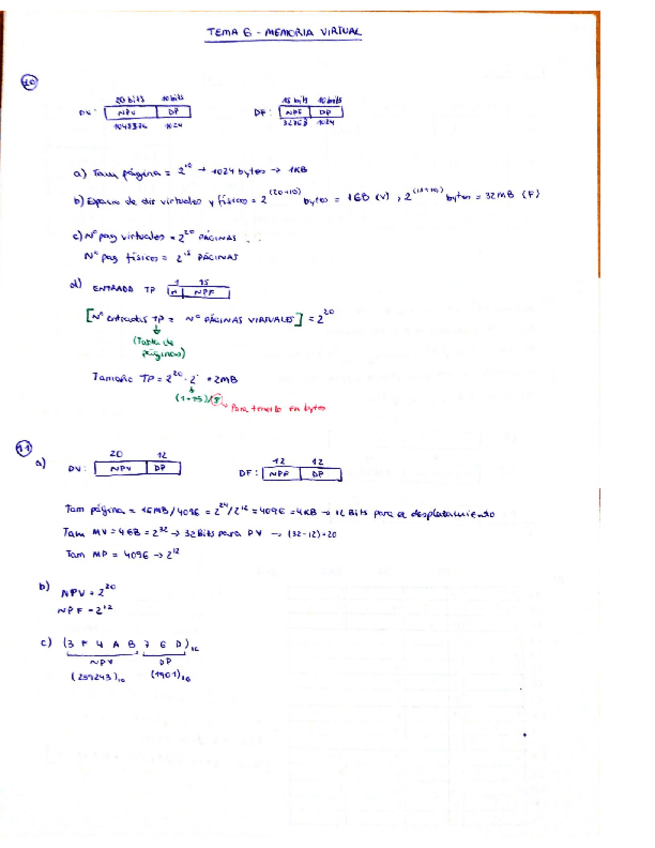 TEMA 6 - MEMORIA VIRTUAL
10
20 bits 10 bits 15 bits 10 bits
DV: NPV DP DF: NPF DP
1048576 1024 32768 1024
a) Tam página = 2^10 → 1024 bytes → 1KB
b) Espacio de dir virtuales y físicos = 2^(20+10) bytes = 1GB (V), 2^(15+10) bytes = 32MB (F)
c) Nº pag virtuales = 2^20 PÁGINAS
Nº pag físicas = 2^15 PÁGINAS
1 15
d) ENTRADA TP NPF
[Nº entradas TP = Nº PÁGINAS VIRTUALES] = 2^20
(Tabla de
páginas)
Tamaño TP = 2^20 · 2 = 2MB
(1+15)/8 → Para tenerlo en bytes
11
a)
20 12 12 12
DV: NPV DP DF: NPF DP
Tam página = 16MB/4096 = 2^24/2^12 = 4096 = 4KB → 12 Bits para el desplazamiento
Tam MV = 4GB = 2^32 → 32 Bits para DV → (32-12) = 20
Tam MP = 4096 → 2^12
b) NPV = 2^20
NPF = 2^12
c) (3 F 4 A B 7 6 D)16
NPV DP
(259243)10 (1901)10